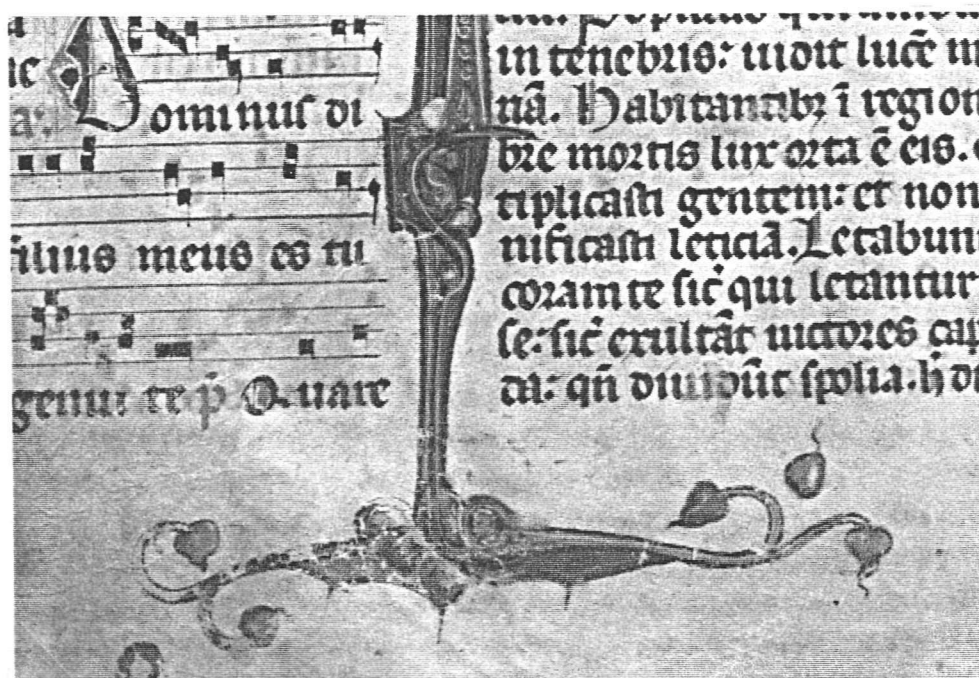 Dominus di
filius meus es tu
genui te p̄ Quare
in tenebris: uidit lucē m
nā. Habitantibꝫ ī region
bre mortis lux orta ē eis.
tiplicasti gentem: et non
nificasti leticiā. Letabun
coram te sic̄ qui letantur
se: sic̄ exultāt uictores cap
da: qn̄ diuidūt spolia. h̄